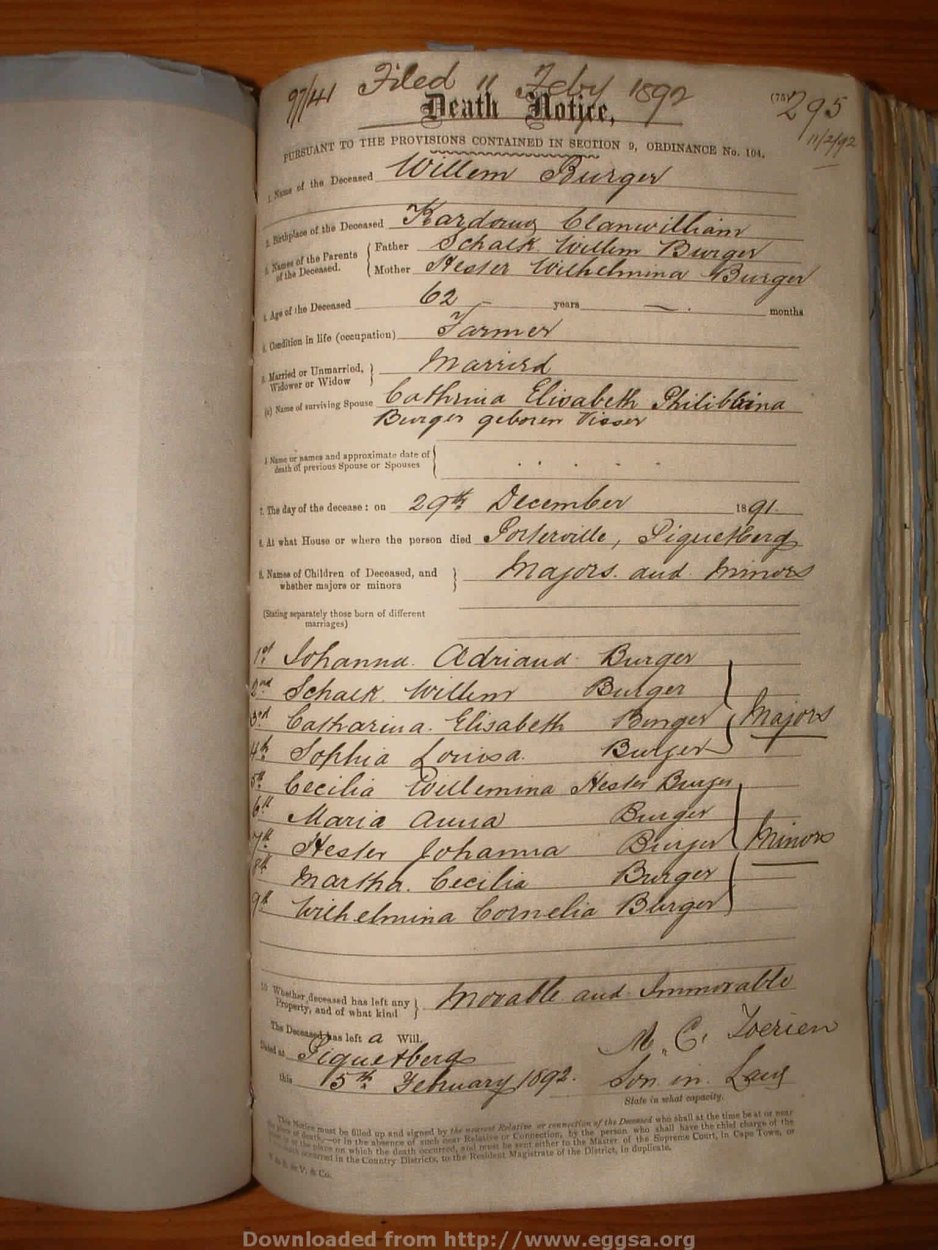 97/141 Filed 11 Feby 1892 295
11/2/92
Death Notice,
PURSUANT TO THE PROVISIONS CONTAINED IN SECTION 9, ORDINANCE No. 104.
1. Name of the Deceased Willem Burger
2. Birthplace of the Deceased Clanwilliam
3. Names of the Parents of the Deceased. Father Schalk Willem Burger
Mother Hester Wilhelmina Burger
4. Age of the Deceased 62 years — months
5. Condition in life (occupation) Farmer
6. Married or Unmarried, Widower or Widow Married
(a) Name of surviving Spouse Cathrina Elisabeth Philibbina
Burger geboren Visser
Name or names and approximate date of
death of previous Spouse or Spouses
7. The day of the decease: on 29th December 1891.
8. At what House or where the person died Porterville, Piquetberg
9. Names of Children of Deceased, and
whether majors or minors Majors and Minors
(Stating separately those born of different
marriages)
1st Johanna Adriana Burger
2nd Schalk Willem Burger
3rd Catharina Elisabeth Burger Majors
4th Sophia Louisa. Burger
5th Cecilia Willemina Hester Burger
6th Maria Anna Burger
7th Hester Johanna Burger Minors
8th Martha Cecilia Burger
9th Wilhelmina Cornelia Burger
10 Whether deceased has left any
Property, and of what kind Movable and Immovable
The Deceased has left a Will.
Dated at Piquetberg M. C. Zoerien
this 15th February 1892. Son in Law
State in what capacity.
This Notice must be filled up and signed by the nearest Relative or connection of the Deceased who shall at the time be at or near
the place of death,—or in the absence of such near Relative or Connection, by the person who shall have the chief charge of the
house in or of the place on which the death occurred, and must be sent either to the Master of the Supreme Court, in Cape Town, or
if the death occurred in the Country Districts, to the Resident Magistrate of the District, in duplicate.
Downloaded from http://www.eggsa.org